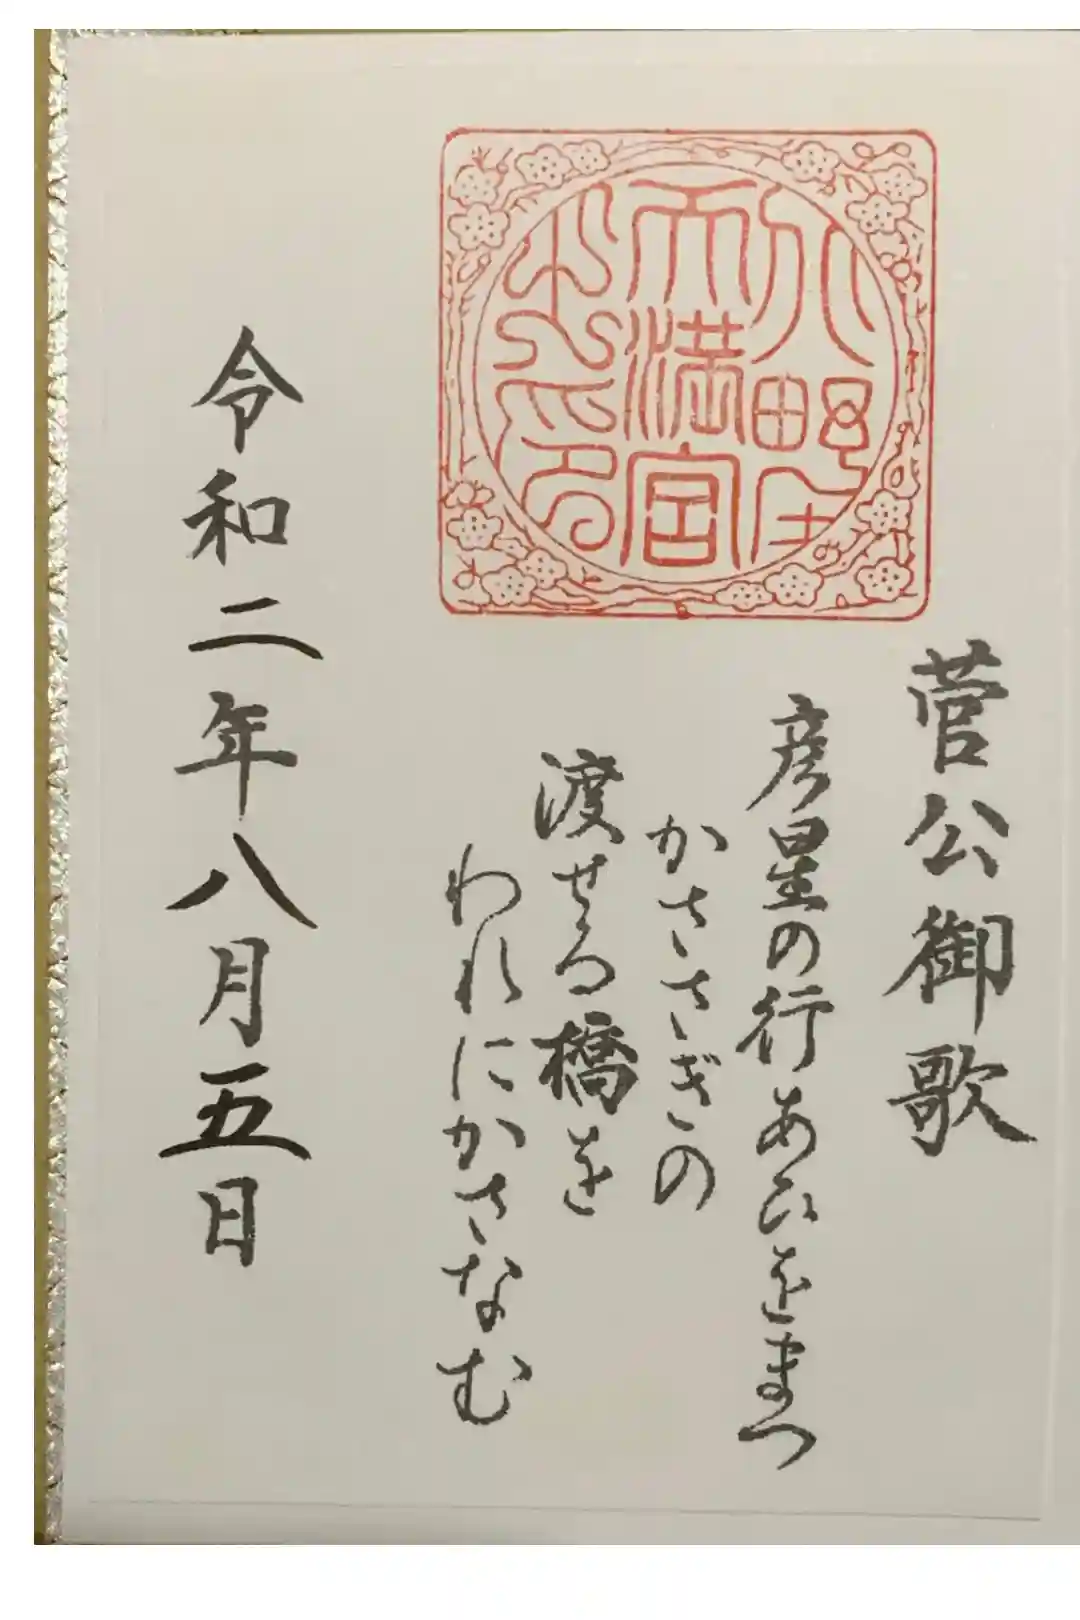 小野庄
天満宮
之印
菅公御歌
彦星の行あひをまつ
かささぎの
渡せる橋を
われにかさなむ
令和二年八月五日